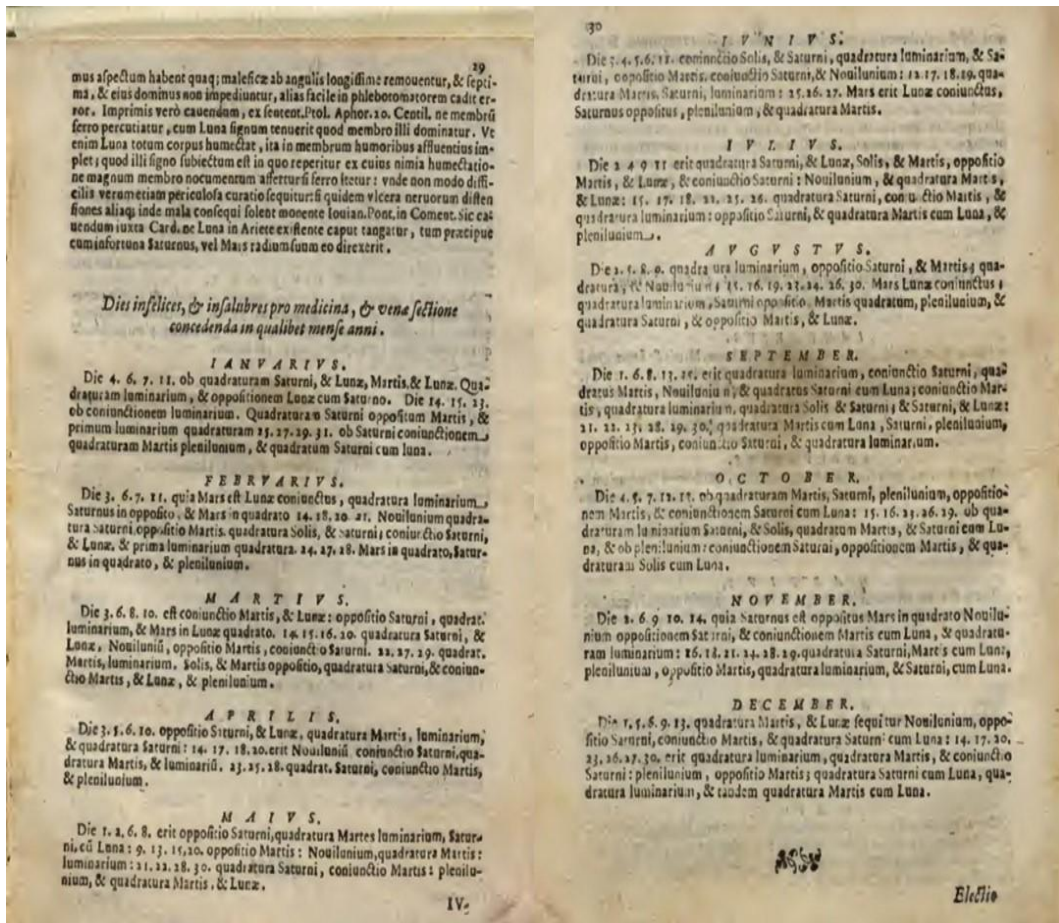 29
mus aſpectum habent quaq; maleficæ ab angulis longiſſime remouentur, & ſepti-
ma, & eius dominus non impediuntur, alias facile in phlebotomatorem cadit er-
ror. Imprimis verò cauendum, ex ſentent. Ptol. Aphor. 20. Centil. ne membrũ
ferro percutiatur, cum Luna ſignum tenuerit quod membro illi dominatur. Vt
enim Luna totum corpus humectat, ita in membrum humoribus affluentius im-
plet; quod illi ſigno ſubiectum eſt in quo reperitur ex cuius nimia humectatio-
ne magnum membro nocumentum affertur ſi ferro : vnde non modo diffi-
cilis verumetiam periculoſa curatio ſequitur: ſi quidem vlcera neruorum diſten
ſiones aliaq; inde mala conſequi ſolent monente Iouian. Pont. in Coment. Sic ca-
uendum iuxta Card. ne Luna in Ariete exiſtente caput tangatur, tum præcipue
cum infortuna Saturnus, vel Mars radium ſuum eo direxerit.
Dies infelices, & inſalubres pro medicina, & venæ ſectione
concedenda in qualibet menſe anni.
IANVARIVS.
Die 4. 6. 7. 11. ob quadraturam Saturni, & Lunæ, Martis, & Lunæ. Qua-
draturam luminarium, & oppoſitionem Lunæ cum Saturno. Die 14. 15. 23.
ob coniunctionem luminarium. Quadraturam Saturni oppoſitum Martis, &
primum luminarium quadraturam 25. 27. 29. 31. ob Saturni coniunctionem
quadraturam Martis plenilunium, & quadratum Saturni cum luna.
FEBRVARIVS.
Die 3. 6. 7. 11. quia Mars eſt Lunæ coniunctus, quadratura luminarium
Saturnus in oppoſito, & Mars in quadrato 14. 18. 20 21. Nouilunium quadra-
tura Saturni oppoſitio Martis. quadratura Solis, & Saturni; coniunctio Saturni,
& Lunæ, & prima luminarium quadratura. 24. 27. 28. Mars in quadrato, Satur-
nus in quadrato, & plenilunium.
MARTIVS.
Die 3. 6. 8. 10. eſt coniunctio Martis, & Lunæ: oppoſitio Saturni, quadrat.
luminarium, & Mars in Lunæ quadrato. 14. 15. 16. 20. quadratura Saturni, &
Lunæ, Nouiluniũ, oppoſitio Martis, coniunctio Saturni. 22. 27. 29. quadrat.
Martis, luminarium. Solis, & Martis oppoſitio, quadratura Saturni, & coniun-
ctio Martis, & Lunæ, & plenilunium.
APRILIS.
Die 3. 5. 6. 10. oppoſitio Saturni, & Lunæ, quadratura Martis, luminarium,
& quadratura Saturni: 14. 17. 18. 20. erit Nouiluniũ coniunctio Saturni, qua-
dratura Martis, & luminariũ. 23. 25. 28. quadrat. Saturni, coniunctio Martis,
& plenilunium.
MAIVS.
Die 1. 2. 6. 8. erit oppoſitio Saturni, quadratura Martes luminarium, Satur-
ni, cũ Luna: 9. 13. 15. 20. oppoſitio Martis: Nouilunium, quadratura Martis:
luminarium: 21. 22. 28. 30. quadratura Saturni, coniunctio Martis: plenilu-
nium, & quadratura Martis, & Lunæ.
IV-
30
IVNIVS.
Die 3. 4. 5. 6. 11. coniunctio Solis, & Saturni, quadratura luminarium, & Sa-
turni, oppoſitio Martis, coniunctio Saturni, & Nouilunium: 12. 17. 18. 19. qua-
dratura Martis, Saturni, luminarium: 25. 26. 27. Mars erit Lunæ coniunctus,
Saturnus oppoſitus, plenilunium, & quadratura Martis.
IVLIVS.
Die 2 4 9 11 erit quadratura Saturni, & Lunæ, Solis, & Martis, oppoſitio
Martis, & Lunæ, & coniunctio Saturni: Nouilunium, & quadratura Martis,
& Lunæ: 15. 17. 18. 22. 25. 26. quadratura Saturni, coniunctio Martis, &
quadratura luminarium: oppoſitio Saturni, & quadratura Martis cum Luna, &
plenilunium.
AVGVSTVS.
Die 2. 5. 8. 9. quadratura luminarium, oppoſitio Saturni, & Martis; qua-
dratura, & Nouilunium; 15. 16. 19. 23. 24. 26. 30. Mars Lunæ coniunctus;
quadratura luminarium, Saturni oppoſitio. Martis quadratum, plenilunium, &
quadratura Saturni, & oppoſitio Martis, & Lunæ.
SEPTEMBER.
Die 1. 6. 8. 13. 15. erit quadratura luminarium, coniunctio Saturni, qua-
dratus Martis, Nouilunium, & quadratus Saturni cum Luna; coniunctio Mar-
tis, quadratura luminarium, quadratura Solis & Saturni; & Saturni, & Lunæ:
21. 22. 23. 28. 29. 30. quadratura Martis cum Luna, Saturni, plenilunium,
oppoſitio Martis, coniunctio Saturni, & quadratura luminarium.
OCTOBER.
Die 4. 5. 7. 12. 13. ob quadraturam Martis, Saturni, plenilunium, oppoſitio-
nem Martis, & coniunctionem Saturni cum Luna: 15. 16. 23. 26. 29. ob qua-
draturam luminarium Saturni, & Solis, quadratum Martis, & Saturni cum Lu-
na, & ob plenilunium: coniunctionem Saturni, oppoſitionem Martis, & qua-
draturam Solis cum Luna.
NOVEMBER.
Die 2. 6. 9 10. 14. quia Saturnus eſt oppoſitus Mars in quadrato Nouilu-
nium oppoſitionem Saturni, & coniunctionem Martis cum Luna, & quadratu-
ram luminarium: 16. 18. 21. 24. 28. 29. quadratura Saturni, Martis cum Luna,
plenilunium, oppoſitio Martis, quadratura luminarium, & Saturni, cum Luna.
DECEMBER.
Die 1. 5. 6. 9. 13. quadratura Martis, & Lunæ ſequitur Nouilunium, oppo-
ſitio Saturni, coniunctio Martis, & quadratura Saturni cum Luna: 14. 17. 20.
23. 26. 27. 30. erit quadratura luminarium, quadratura Martis, & coniunctio
Saturni: plenilunium, oppoſitio Martis; quadratura Saturni cum Luna, qua-
dratura luminarium, & tandem quadratura Martis cum Luna.
Electio